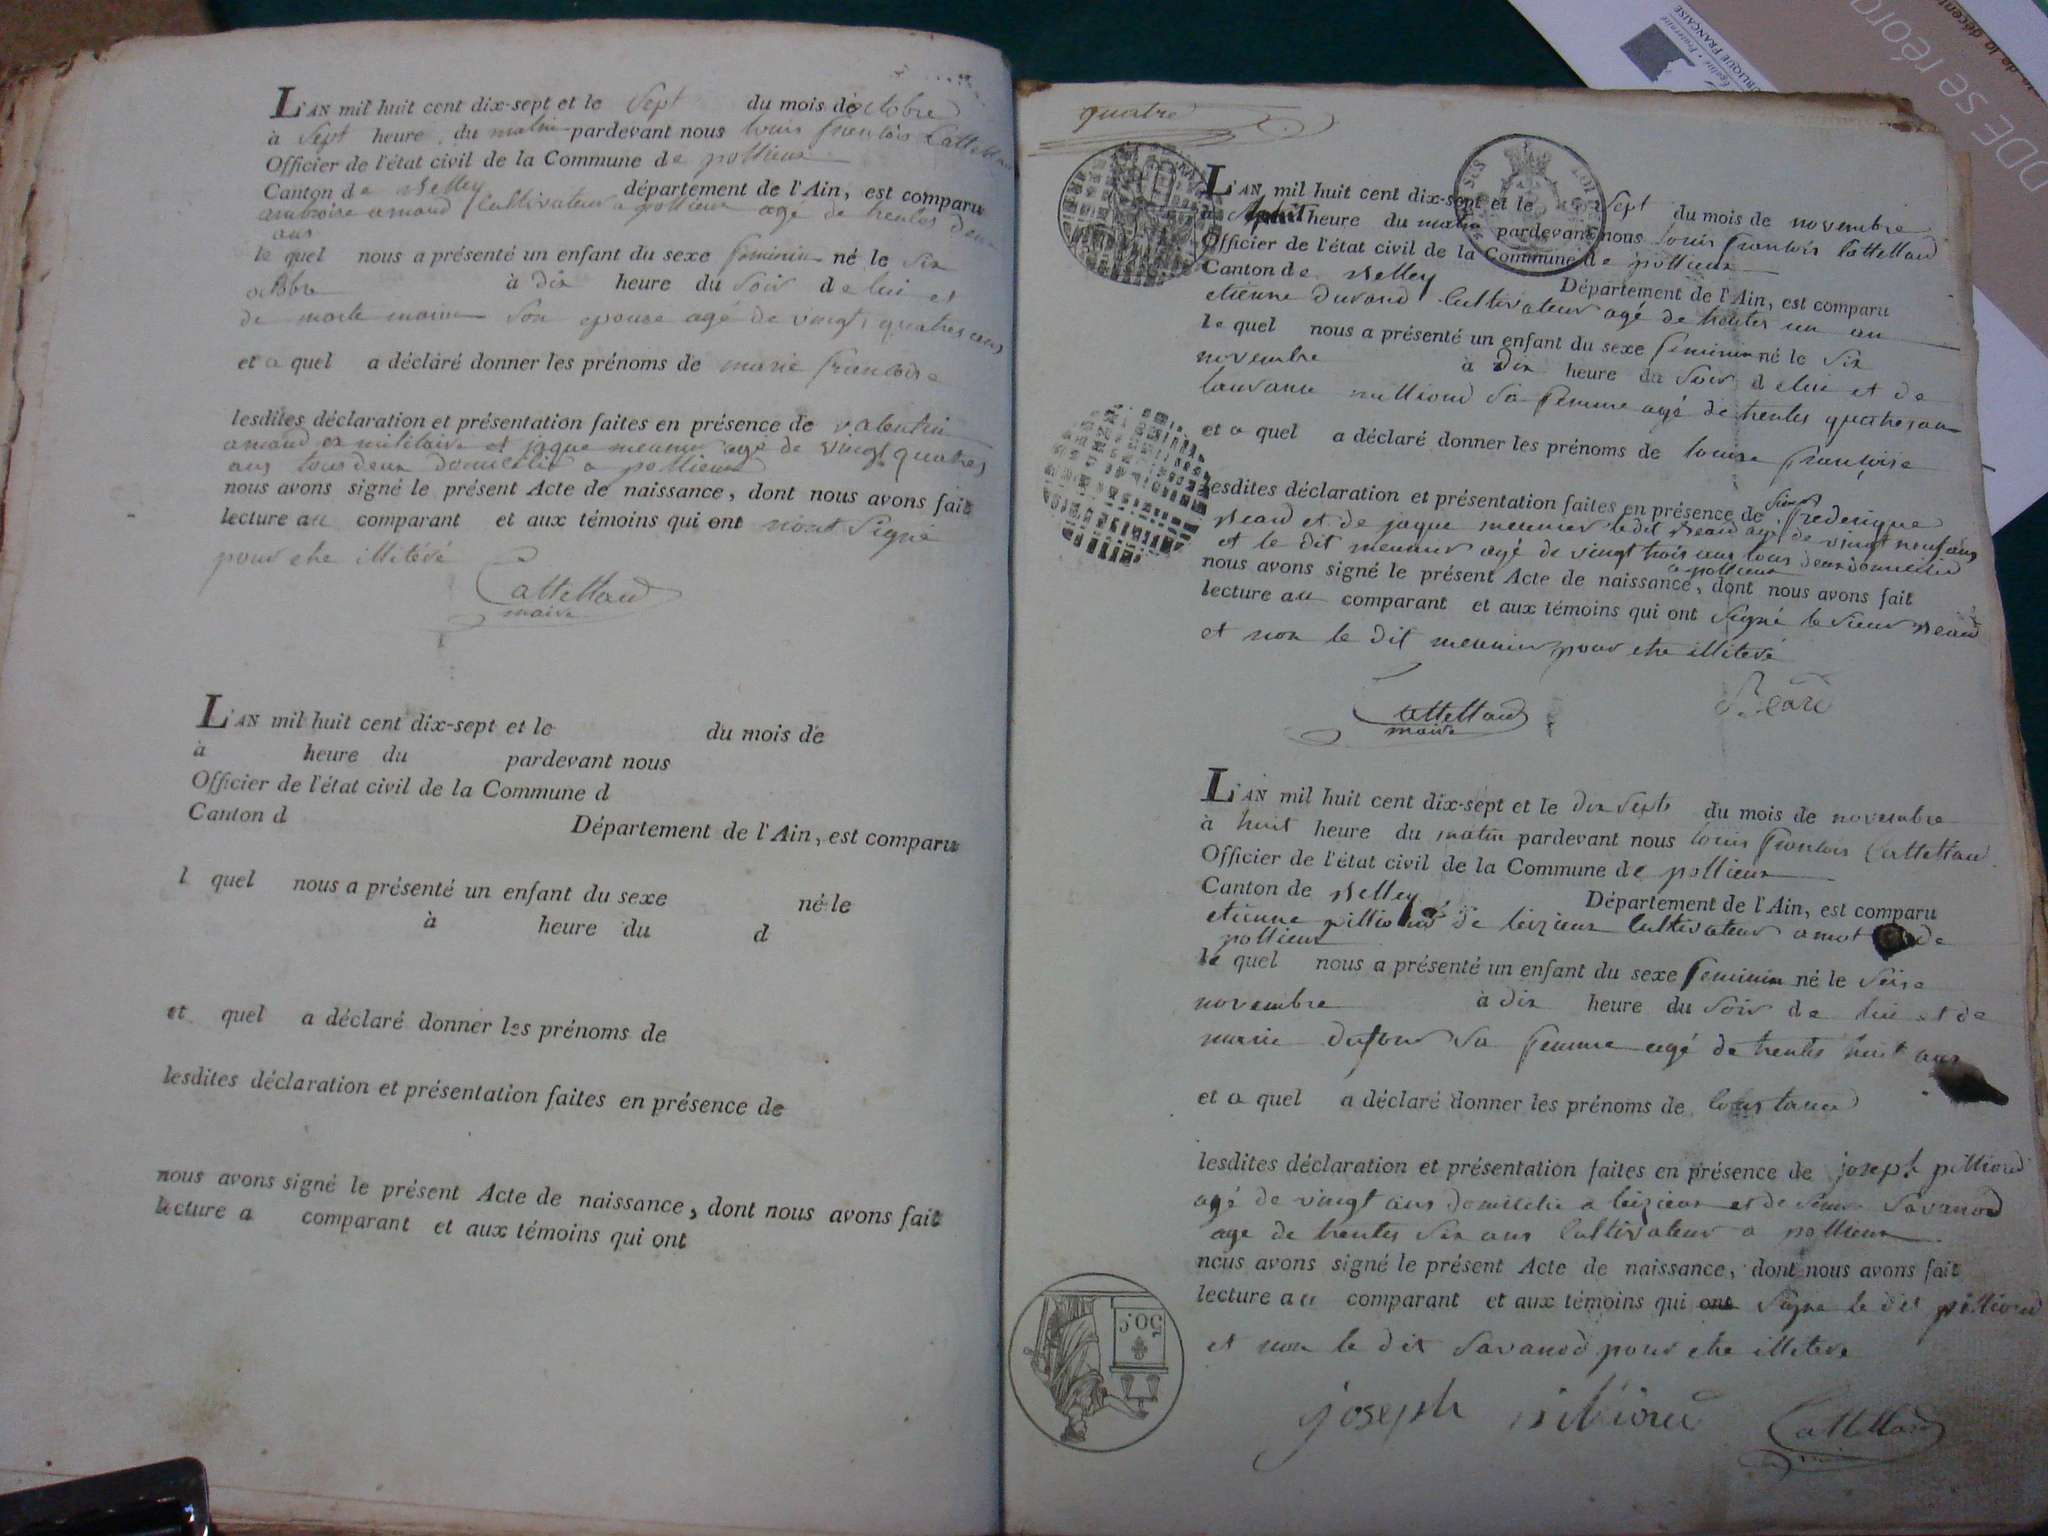 L'AN mil huit cent dix-sept et le sept du mois de octobre
à sept heure du matin pardevant nous louis francois Cattelland
Officier de l'état civil de la Commune de pollieux
Canton de Belley département de l'Ain, est comparu
ambroise amand Cultivateur a pollieux agé de trentes deux
ans
le quel nous a présenté un enfant du sexe feminin né le six
octobre à dix heure du soir de lui et
de marie son epouse agé de vingts quatres ans
et a quel a déclaré donner les prénoms de marie francoise
lesdites déclaration et présentation faites en présence de valentin
amand ex militaire et jaque meunier agé de vingt quatres
ans tous deux domicilié a pollieux
nous avons signé le présent Acte de naissance, dont nous avons fait
lecture au comparant et aux témoins qui ont n'ont signé
pour etre illitéré
Cattelland
maire
L'AN mil huit cent dix-sept et le du mois de
à heure du pardevant nous
Officier de l'état civil de la Commune d
Canton d Département de l'Ain, est comparu
l quel nous a présenté un enfant du sexe né le
à heure du d
et quel a déclaré donner les prénoms de
lesdites déclaration et présentation faites en présence de
nous avons signé le présent Acte de naissance, dont nous avons fait
lecture a comparant et aux témoins qui ont
quatre
L'AN mil huit cent dix-sept et le sept du mois de novembre
à heure du matin pardevant nous louis francois Cattelland
Officier de l'état civil de la Commune de pollieux
Canton de Belley Département de l'Ain, est comparu
etienne durand Cultivateur agé de trentes un an
le quel nous a présenté un enfant du sexe feminin né le six
novembre à dix heure du soir de lui et de
millioud sa femme agé de trentes quatres ans
et a quel a déclaré donner les prénoms de louise francoise
lesdites déclaration et présentation faites en présence de sieur frederique
Beard et de jaque meunier le dit Beard agé de vingt neuf ans
et le dit meunier agé de vingt trois ans tous deux domicilié
a pollieux
nous avons signé le présent Acte de naissance, dont nous avons fait
lecture au comparant et aux témoins qui ont signé le sieur Beard
et non le dit meunier pour etre illiteré
Cattelland
maire
Beard
L'AN mil huit cent dix-sept et le dix septs du mois de novembre
à huit heure du matin pardevant nous louis francois Cattelland
Officier de l'état civil de la Commune de pollieux
Canton de Belley Département de l'Ain, est comparu
etienne pilliod de leizieux Cultivateur a de
pollieux
le quel nous a présenté un enfant du sexe feminin né le seize
novembre à dix heure du soir de lui et de
marie dufour sa femme agé de trentes huit ans
et a quel a déclaré donner les prénoms de Constance
lesdites déclaration et présentation faites en présence de joseph pillioud
agé de vingt ans domicilié a leizieux et de Savanod
age de trentes six ans Cultivateur a pollieux
nous avons signé le présent Acte de naissance, dont nous avons fait
lecture au comparant et aux témoins qui ont signe le dit pillioud
et non le dit Savanod pour etre illiteré
50.c.
joseph Cattelland